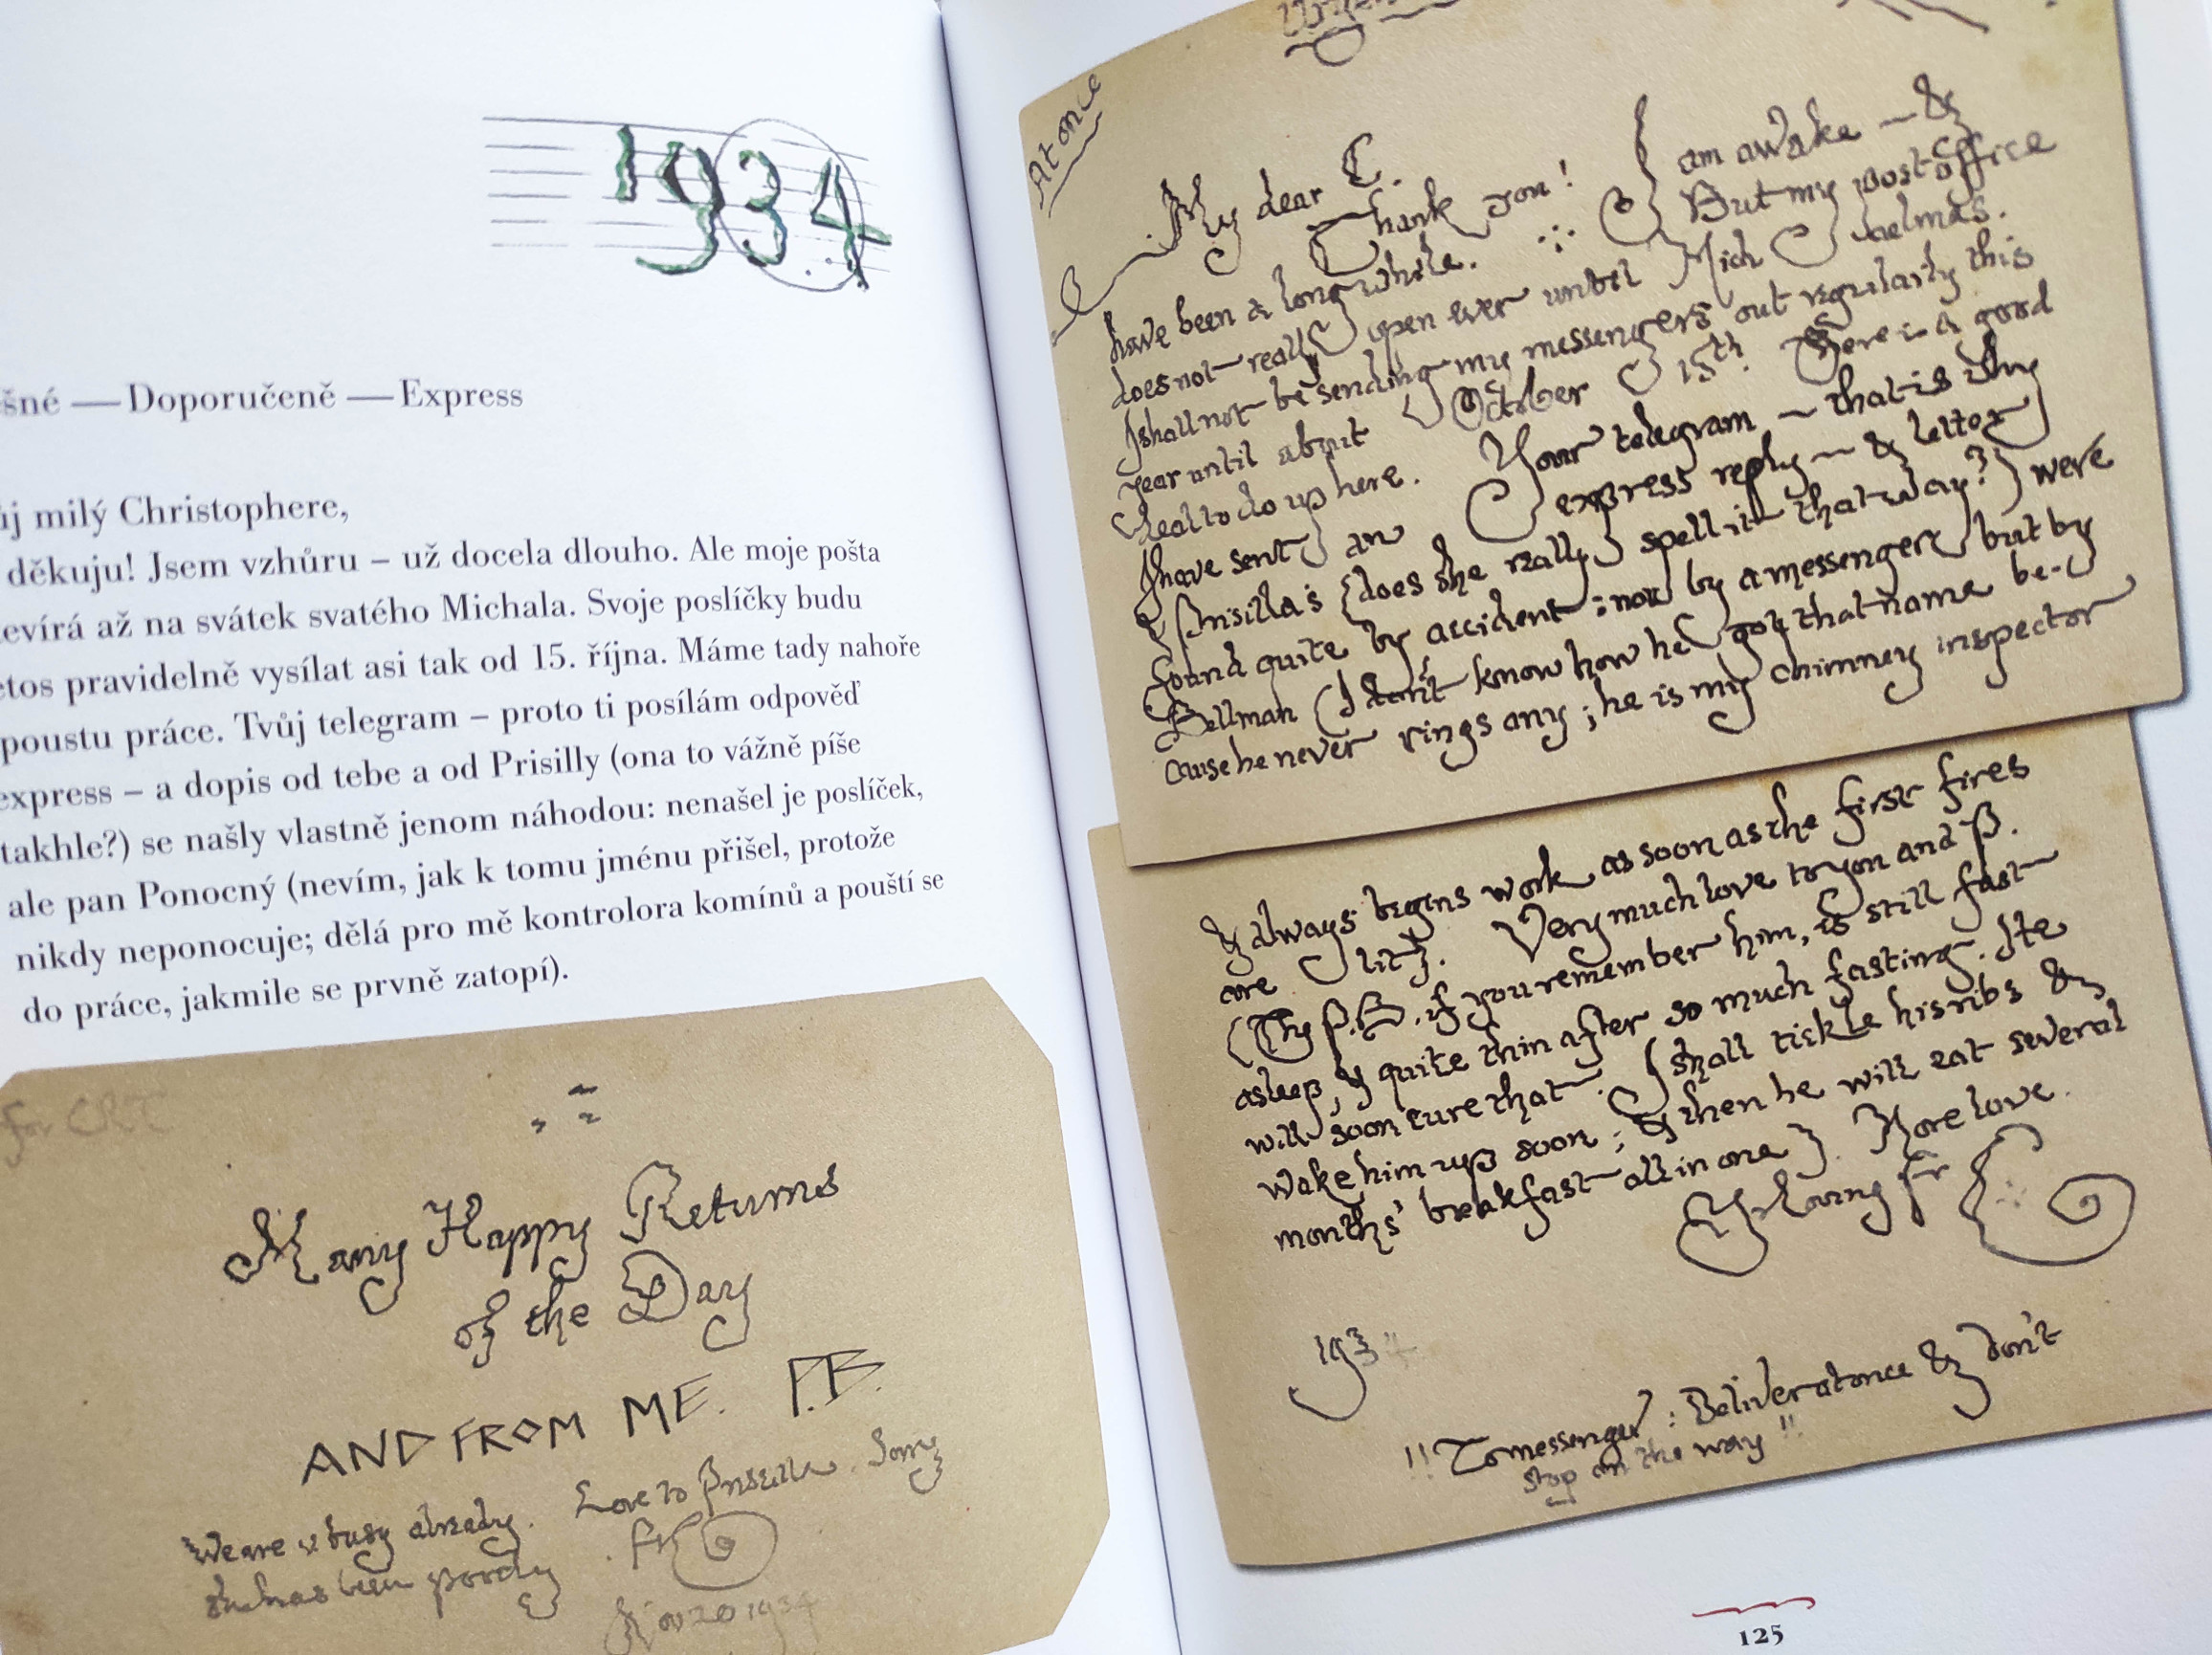 1934
šné — Doporučeně — Express
ůj milý Christophere,
děkuju! Jsem vzhůru – už docela dlouho. Ale moje pošta
evírá až na svátek svatého Michala. Svoje poslíčky budu
etos pravidelně vysílat asi tak od 15. října. Máme tady nahoře
poustu práce. Tvůj telegram – proto ti posílám odpověď
express – a dopis od tebe a od Prisilly (ona to vážně píše
takhle?) se našly vlastně jenom náhodou: nenašel je poslíček,
ale pan Ponocný (nevím, jak k tomu jménu přišel, protože
nikdy neponocuje; dělá pro mě kontrolora komínů a pouští se
do práce, jakmile se prvně zatopí).
for CRT
Many Happy Returns
of the Day
AND FROM ME. P.B.
We are v busy already. Love to Prisilla. Sorry
she has been poorly. FrC
Nov 20 1934
At once
My dear C.
Thank you! I am awake — &
have been a long while. But my post office
does not really open ever until Michaelmas.
I shall not be sending my messengers out regularly this
year until about October 15th. There is a good
deal to do up here. Your telegram — that is why
I have sent an express reply — & letter &
Prisilla's (does she really spell it that way?) were
found quite by accident: not by a messenger but by
Bellman (I don't know how he got that name be-
cause he never rings any; he is my chimney inspector
& always begins work as soon as the first fires
are lit). Very much love to you and P.
(The P.B. if you remember him, is still fast
asleep, & quite thin after so much fasting. He
will soon cure that. I shall tickle his ribs &
wake him up soon; & then he will eat several
months' breakfast all in one). More love.
Yr loving Fr C
1934
!! To messenger: Deliver at once & don't
stop on the way !!
125